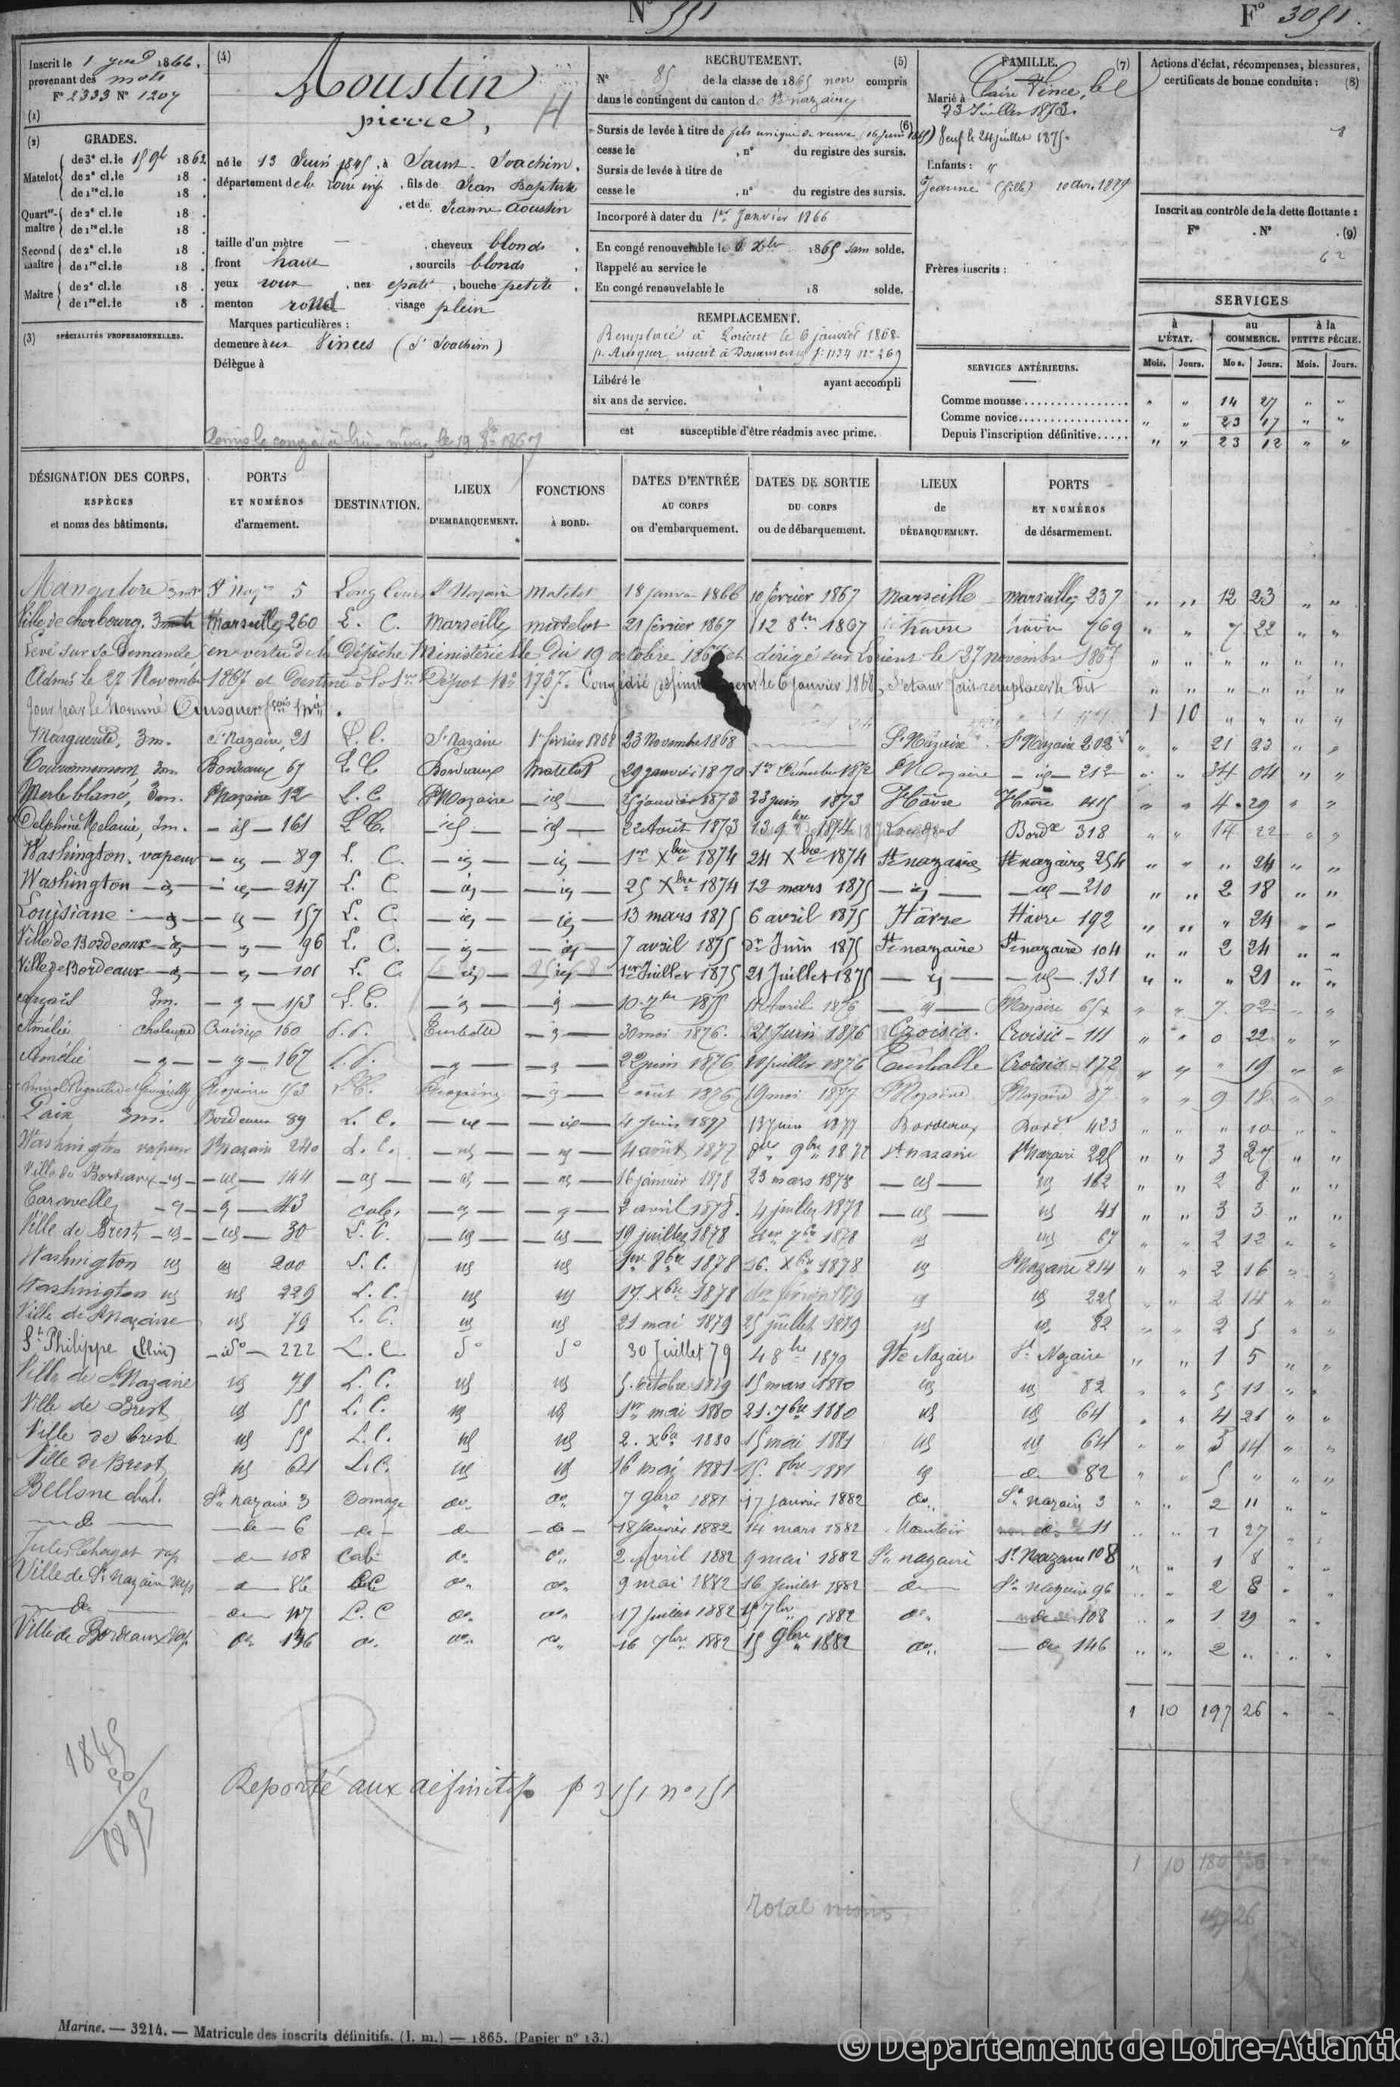 N° 551 F° 3051.
Inscrit le 1 1866.
provenant des mots
F° 2333 N° 1207
(1)
(2) GRADES.
Matelot de 3e cl. le 15 9bre 1862
de 2e cl. le 18 .
de 1re cl. le 18 .
Quart-maître de 2e cl. le 18 .
de 1re cl. le 18 .
Second maître de 2e cl. le 18 .
de 1re cl. le 18 .
Maître de 2e cl. le 18 .
de 1re cl. le 18 .
(3) SPÉCIALITÉS PROFESSIONNELLES.
(4)
Moustin
pierre, H
né le 13 Juin 1845, à Saint-Joachim.
département de la Loire inf , fils de Jean Baptiste
, et de Jeanne Aoustin
taille d'un mètre — , cheveux blonds ,
front haut , sourcils blonds ,
yeux roux , nez epaté , bouche petite ,
menton rond visage plein
Marques particulières :
demeure à aux Vinces (St Joachim)
Délégué à
Remis le congé à lui-même le 19 8bre 1867
RECRUTEMENT. (5)
N° 85 de la classe de 1865 non compris
dans le contingent du canton de St nazaire
Sursis de levée à titre de fils unique de veuve (16 juin 1865) (6)
cesse le , n° du registre des sursis.
Sursis de levée à titre de
cesse le , n° du registre des sursis.
Incorporé à dater du 1er Janvier 1866
En congé renouvelable le 6 Xbre 1865 sans solde.
Rappelé au service le
En congé renouvelable le 18 solde.
REMPLACEMENT.
Remplacé à Lorient le 6 janvier 1868
p. Ansquer inscrit à Douarnenez f° 1134 n° 269
Libéré le ayant accompli
six ans de service.
est susceptible d'être réadmis avec prime.
FAMILLE. (7)
Marié à Claire Vince, le
23 Juillet 1873.
Veuf le 24 juillet 1875
Enfants : "
Jeanne (fille) 10 avr. 1879
Frères inscrits :
SERVICES ANTÉRIEURS.
Comme mousse " " 14 27 " "
Comme novice " " 23 17 " "
Depuis l'inscription définitive " " 23 12 " "
Actions d'éclat, récompenses, blessures,
certificats de bonne conduite : (8)
Inscrit au contrôle de la dette flottante :
F° . N° . (9)
62
SERVICES
à L'ÉTAT. au COMMERCE. à la PETITE PÊCHE.
Mois. Jours. Mois. Jours. Mois. Jours.
DÉSIGNATION DES CORPS, ESPÈCES et noms des bâtiments.
PORTS ET NUMÉROS d'armement.
DESTINATION.
LIEUX D'EMBARQUEMENT.
FONCTIONS À BORD.
DATES D'ENTRÉE AU CORPS ou d'embarquement.
DATES DE SORTIE DU CORPS ou de débarquement.
LIEUX de DÉBARQUEMENT.
PORTS ET NUMÉROS de désarmement.
Mangalore 3 mâts St Nazre 5 Long Cours St Nazaire Matelot 18 janvr 1866 10 février 1867 Marseille Marseille 237 " " 12 23 " "
Ville de Cherbourg. 3 mâts Marseille 260 L. C. Marseille matelot 21 février 1867 12 8bre 1867 havre havre 769 " " 7 22 " "
Levé sur sa demande en vertu de la Dépêche Ministérielle du 19 octobre 1867 et dirigé sur Lorient le 27 novembre 1867 " " " " " "
Admis le 27 Novembre 1867 et Destiné à la 1re Dépot No 1737. Congédié le 6 janvier 1868, s'étant fait remplacer le dit " " " " " "
jour par le Nommé Ansquer . 1 10 " " " "
Marguerite, 3m. St Nazaire, 21 L. C. St Nazaire 1er février 1868 23 Novembre 1868 St Nazaire St Nazaire 202 " " 21 23 " "
Couronnement, 3m Bordeaux 67 L C Bordeaux Matelot 29 janvier 1870 1er 1872 St Nazaire — id — 212 " " 34 04 " "
Merle blanc, 3m. St Nazaire 12 L. C. St Nazaire — id — 25 janvier 1873 23 juin 1873 Hâvre Hâvre 415 " " 4 29 " "
Delphine Mélanie, 3m. — id — 161 L. C. — id — — id — 22 Août 1873 13 9bre 1874 Bordx 318 " " 14 22 " "
Washington. vapeur — id — 89 L. C. — id — — id — 1er Xbre 1874 24 Xbre 1874 St nazaire St nazaire 254 " " " 24 " "
Washington — id — — id — 247 L. C. — id — — id — 25 Xbre 1874 12 mars 1875 — id — — id — 210 " " 2 18 " "
Louisiane — id — — id — 157 L. C. — id — — id — 13 mars 1875 6 avril 1875 Hâvre Hâvre 192 " " " 24 " "
Ville de Bordeaux — id — — id — 96 L. C. — id — — id — 7 avril 1875 Juin 1875 St nazaire St nazaire 104 " " 2 24 " "
Ville de Bordeaux — id — — id — 101 L. C. — id — — id — 1er Juillet 1875 21 Juillet 1875 — id — — id — 131 " " " 21 " "
3m. — id — 153 L. C. — id — — id — 10 7bre 1875 Avril 1876 — id — St Nazaire 65 " " 7 02 " "
Amélie chaloupe Croisic 160 Turballe — id — 30 mai 1876. 21 Juin 1876 Croisic. Croisic - 111 " " 0 22 " "
Amélie — id — — id — 167 — id — — id — 22 juin 1876 10 juillet 1876 Turballe Croisic 172 " " " 19 " "
St Nazaire 153 L. C. St Nazaire — id — 2 août 1876 19 mai 1877 St Nazaire St Nazaire 87 " " 9 18 " "
Paix 3m. Bordeaux 89 L. C. — id — — id — 4 Juin 1877 13 Juin 1877 Bordeaux Bordx 423 " " " 10 " "
Washington vapeur St Nazaire 240 L. C. — id — — id — 4 août 1877 9bre 1877 St nazaire St Nazaire 225 " " 3 27 " "
Ville de Bordeaux — id — — id — 144 — id — — id — — id — 16 janvier 1878 23 mars 1878 — id — id 162 " " 2 8 " "
Caravelle — id — — id — 43 cab. — id — — id — 2 avril 1878. 4 juillet 1878 — id — id 41 " " 3 3 " "
Ville de Brest — id — — id — 30 L. C. — id — — id — 19 juillet 1878 1er 8bre 1878 id id 67 " " 2 12 " "
Washington id id 200 L. C. id id 1er 8bre 1878 16 Xbre 1878 id St Nazaire 214 " " 2 16 " "
Washington id id 229 L. C. id id 17 Xbre 1878 février 1879 id id 225 " " 2 14 " "
Ville de St Nazaire id 79 L. C. id id 21 mai 1879 25 juillet 1879 id id 82 " " 2 5 " "
St Philippe — do — 222 L. C. do do 30 Juillet 79 4 8bre 1879 Ste Nazaire St Nazaire " " 1 5 " "
Ville de St Nazaire id 79 L. C. id id 5 octobre 1879 15 mars 1880 id id 82 " " 5 11 " "
Ville de Brest id 55 L. C. id id 1er mai 1880 21 7bre 1880 id id 64 " " 4 21 " "
Ville de brest id 55 L. C. id id 2 Xbre 1880 15 mai 1881 id id 64 " " 5 14 " "
Ville de Brest id 64 L. C. id id 16 mai 1881 15 8bre 1881 id — do — 82 " " 5 " " "
Bellone chal. St nazaire 3 Bornage do do 7 9bre 1881 17 janvier 1882 do St nazaire 3 " " 2 11 " "
— do — — do — 6 — do — — do — — do — 18 janvier 1882 14 mars 1882 Montoir 11 " " 1 27 " "
Jules Chagot vap — do — 108 Cab do do 2 avril 1882 9 mai 1882 St nazaire St Nazaire 108 " " 1 8 " "
Ville de St Nazaire vap do 86 LC do do 9 mai 1882 16 juillet 1882 do St nazaire 96 " " 2 8 " "
— do — do 117 L. C do do 17 juillet 1882 15 7bre 1882 do 108 " " 1 29 " "
Ville de Bordeaux vap do 136 do do do 16 7bre 1882 15 9bre 1882 do — do 146 " " 2 " " "
1 10 197 26 " "
1845
50
1895
R
Reporté aux définitifs f° 3151 n° 151
1 10 180
Total mois
197 26
Marine. — 3214. — Matricule des inscrits définitifs. (I. m.) — 1865. (Papier n° 13.)
© Département de Loire-Atlantic